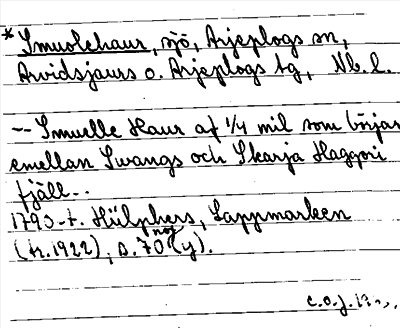 * Smuolehaur, sjö, Arjeplogs sn,
Arvidsjaurs o. Arjeplogs tg, Nb. l.
-- Smuelle Haur af 1/4 mil som börjar
emellan Swangs och Skarja Haggori
fjäll--
1790-t. Hülphers, Lappmarken
(tr. 1922), s. 70 (y).
not
c.o.j.